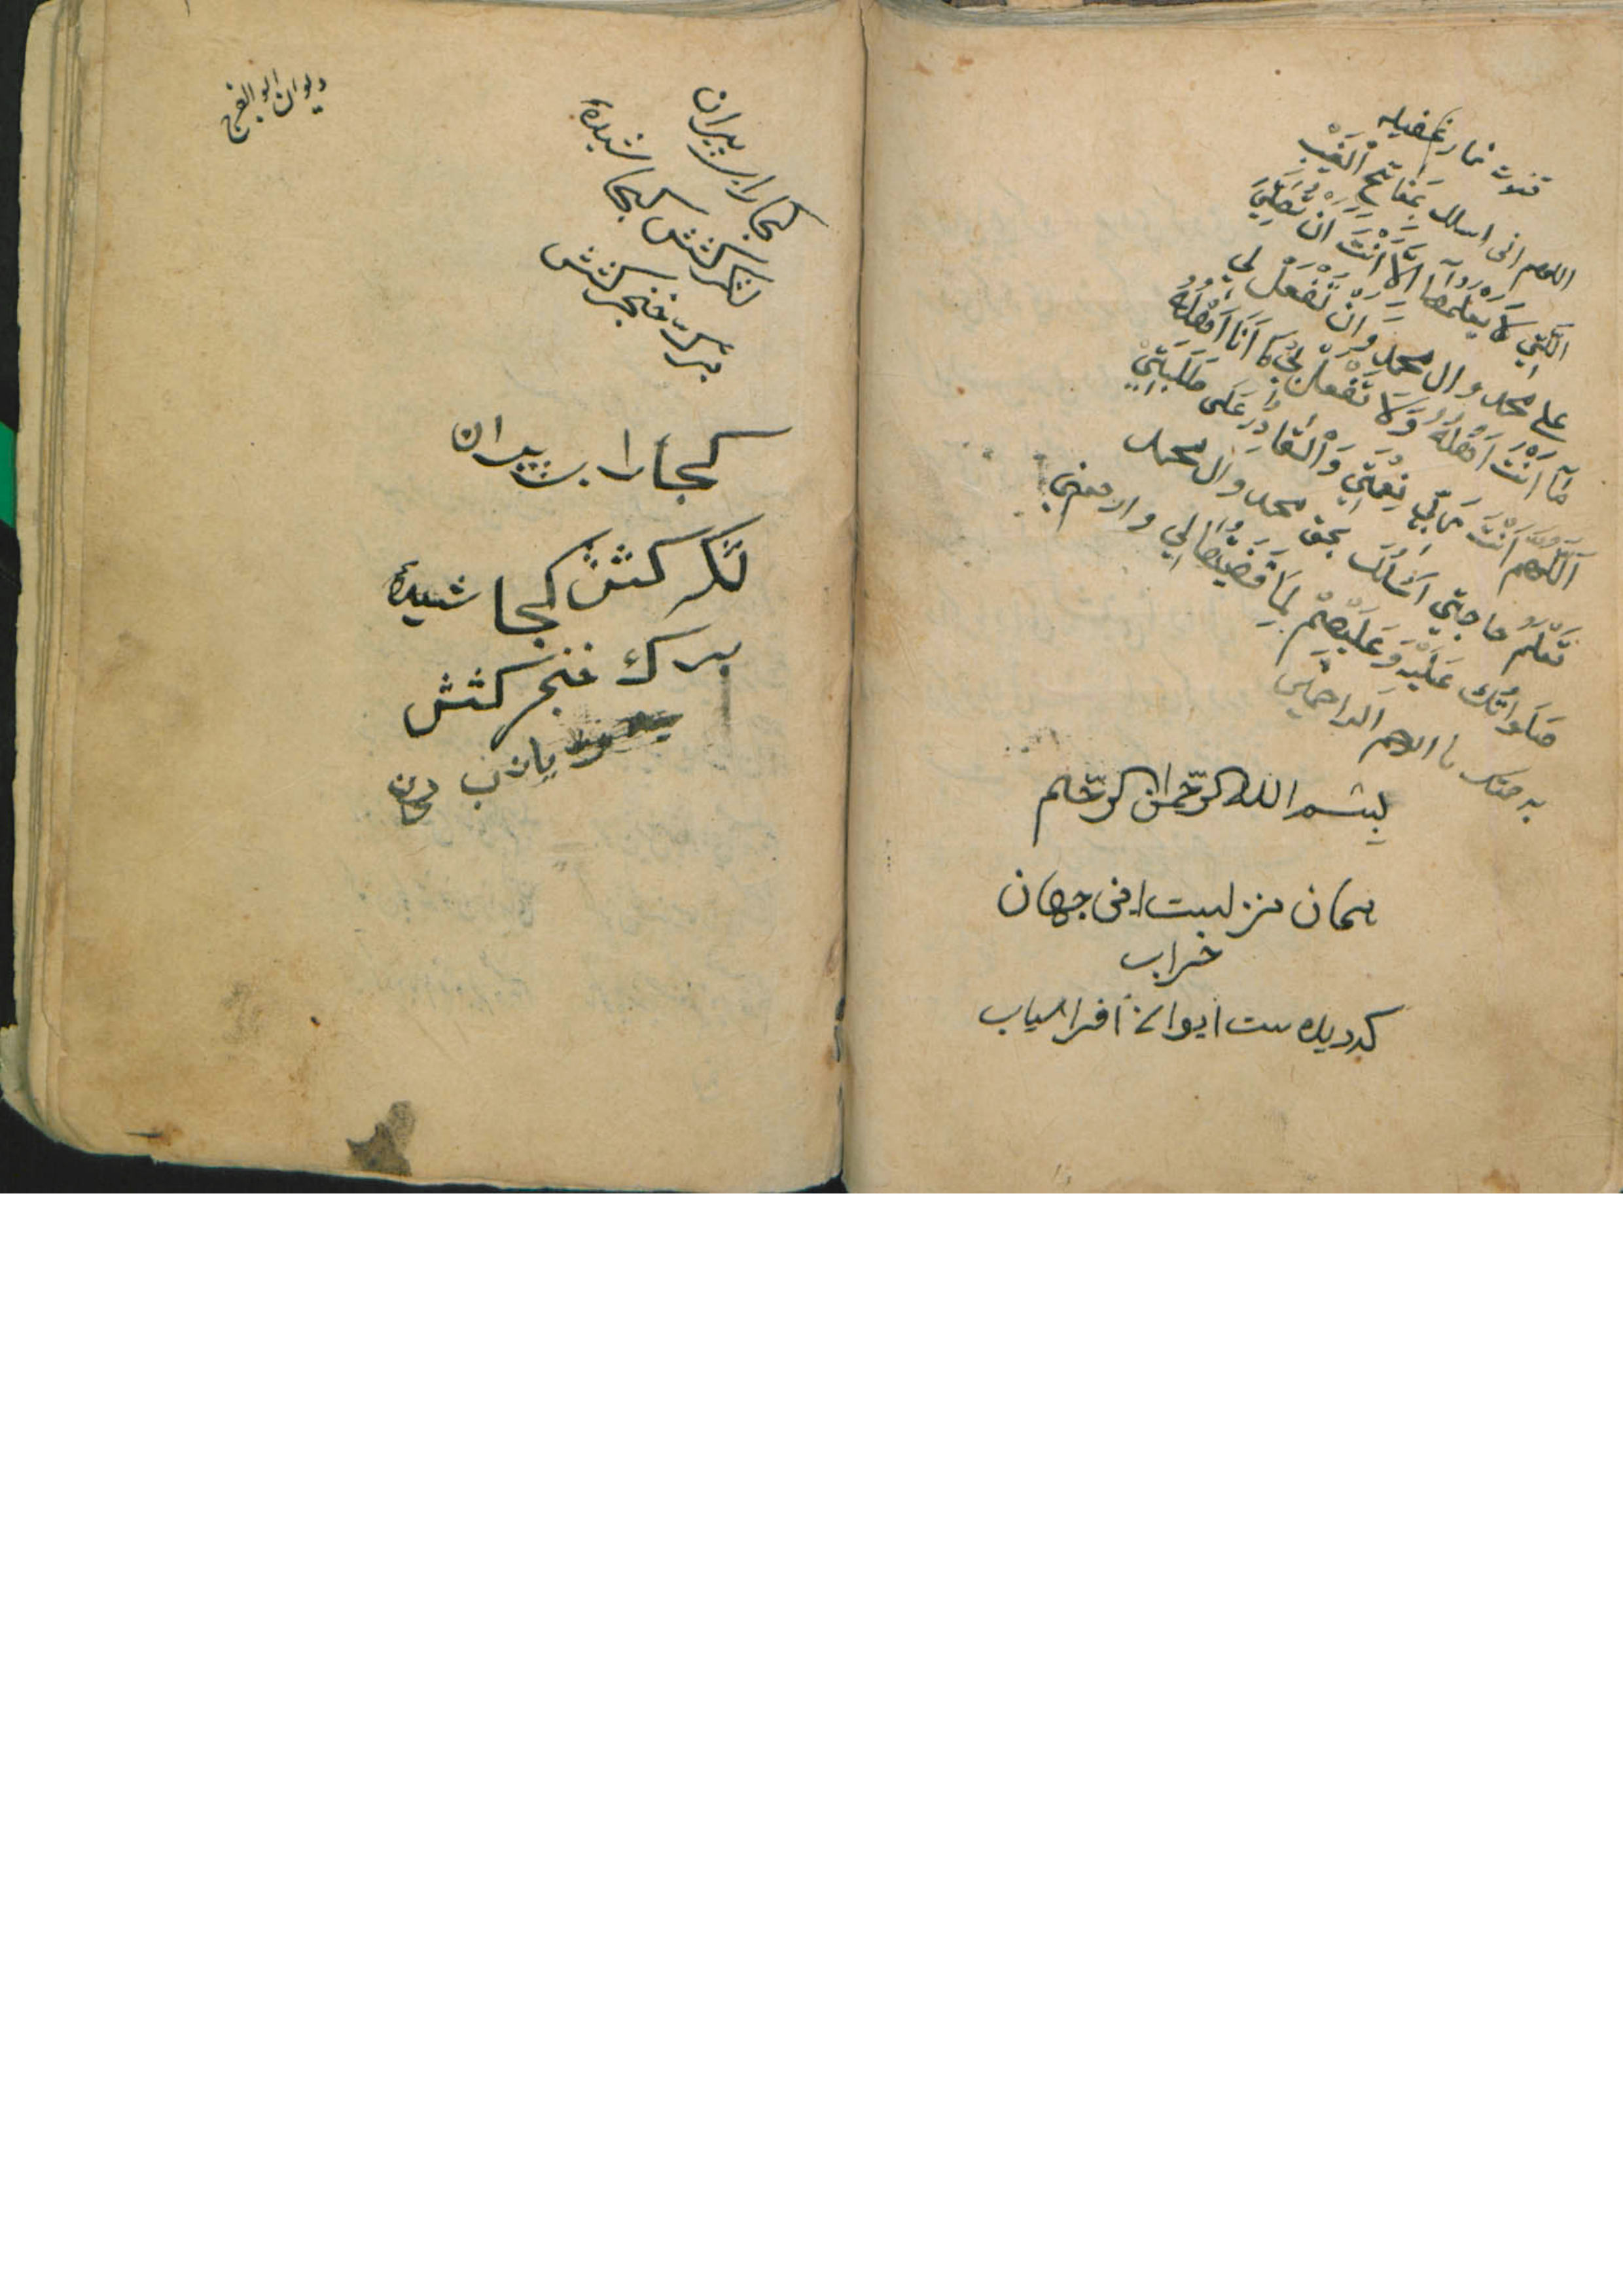 قنوت نماز غفیله
اللهم انی اسلک بمَفاتِحِ الْغَیْبِ
الَّتِي لَا یَعْلَمُهَا اِلَّا اَنْتَ اَنْ تُصَلِّيَ
علی محمد و ال محمد وَاَنْ تَفْعَلْ لِي
مٰا اَنْتَ اَهْلُهُ وَلَا تَفْعَلْ بِي مٰا اَنَا اَهْلُهُ
اَللّٰهُمَّ اَنْتَ وَلِيُّ نِعْمَتِي وَالْقادِرُ عَلَی طَلِبَتِي
تَعْلَمُ حاجَتِي اَسْئَلُكَ بحق محمد و ال محمد
صَلَوٰاتُكَ عَلَیْهِ وَعَلَیْهِمْ لَمَّا قَضَیْتَهٰا لِي و ارحمنی
برحمتک یا ارحم الراحمین
بِسْمِ اللهِ الرَّحْمٰنِ الرَّحیم
همان منزلیست این جهان
خراب
که دیده ست ایوان افراسیاب
دیوان ابو الفرج
کجا رای پیران
لشکر کشش کجا شیدۀ
ترک خنجر کشش
کجا رای پیران
لشکر کشش کجا شیدۀ
ترک خنجر کشش